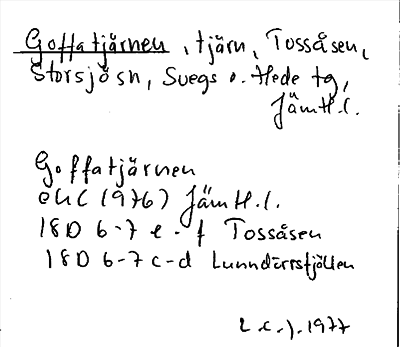 Goffatjärnen, tjärn, Tossåsen,
Storsjö sn, Svegs o. Hede tg,
Jämtl.l.
Goffatjärnen
ekC (1976) Jämtl.l.
18D 6-7 e-f Tossåsen
18D 6-7 c-d Lunndörrsfjällen
1977